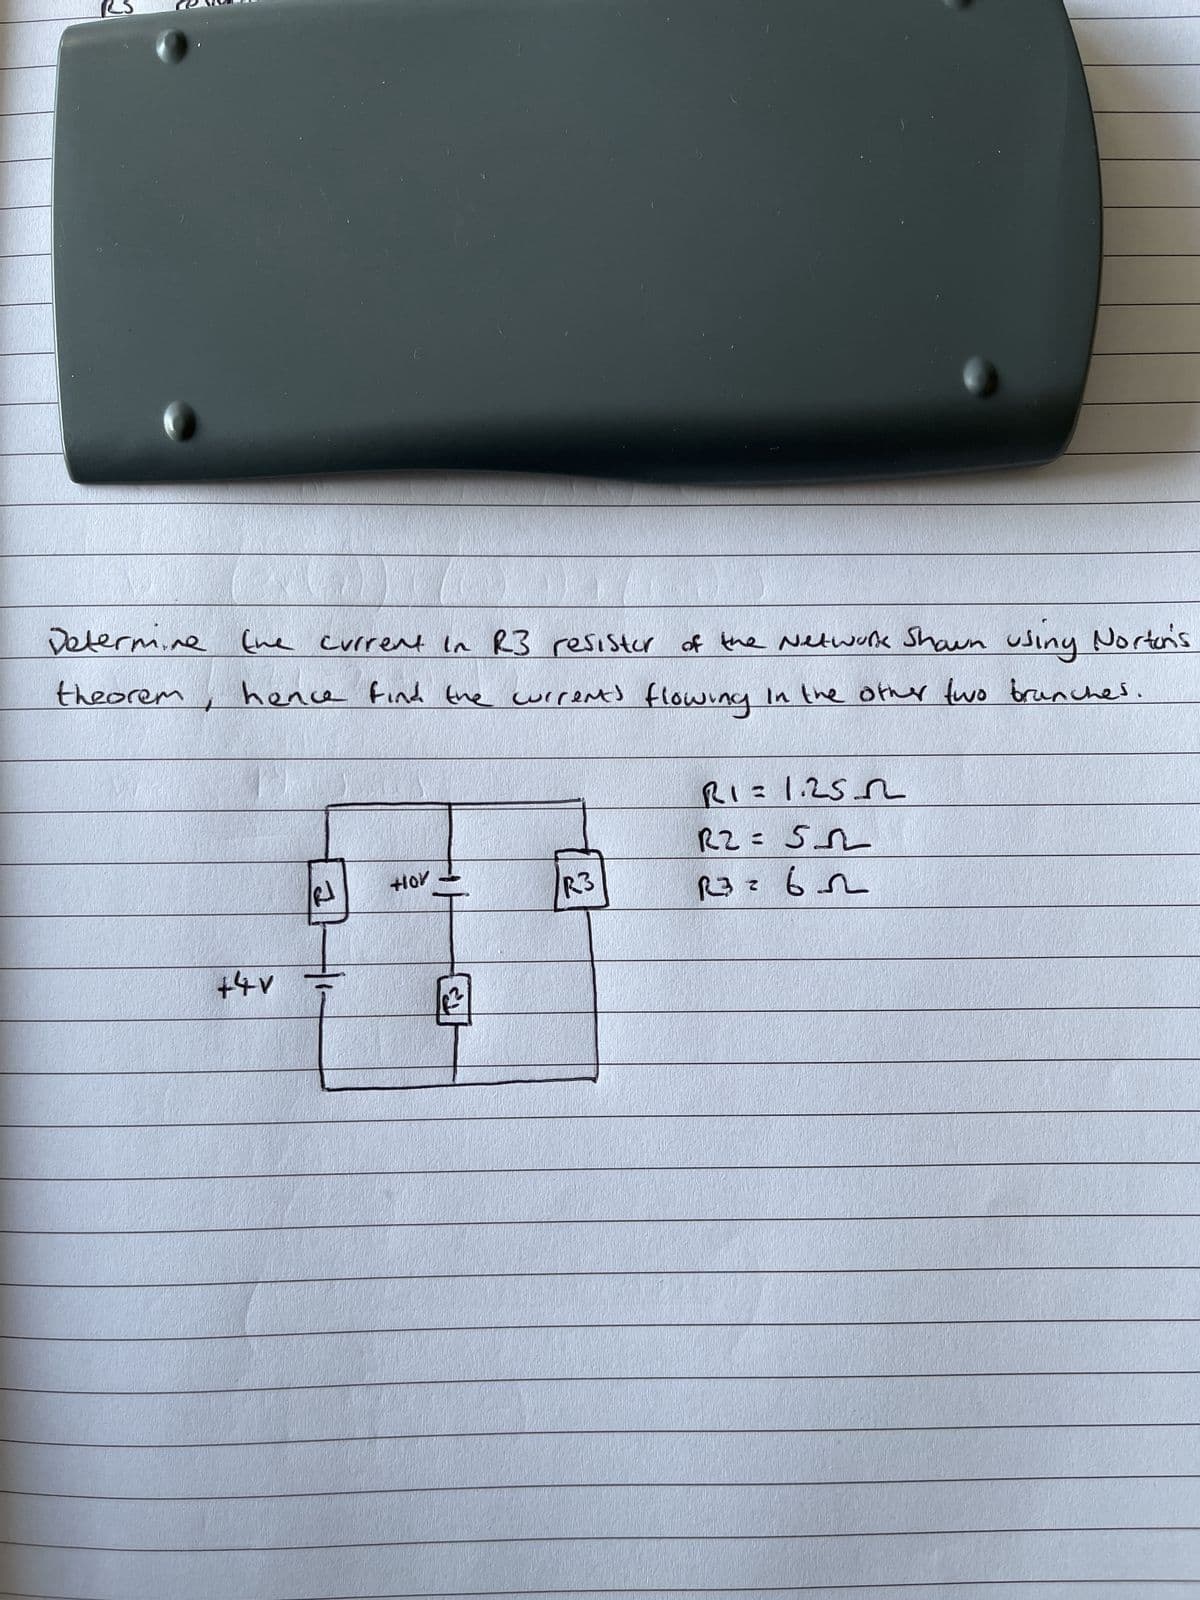 R3
Determine the current in R3 resistor of the Network Shown using Norton's
theorem, hence find the currents flowing in the other two branches.
R1 = 1.25 Ω
R2 = 5 Ω
R3 = 6 Ω
R1
+10V
R3
+4V
R2